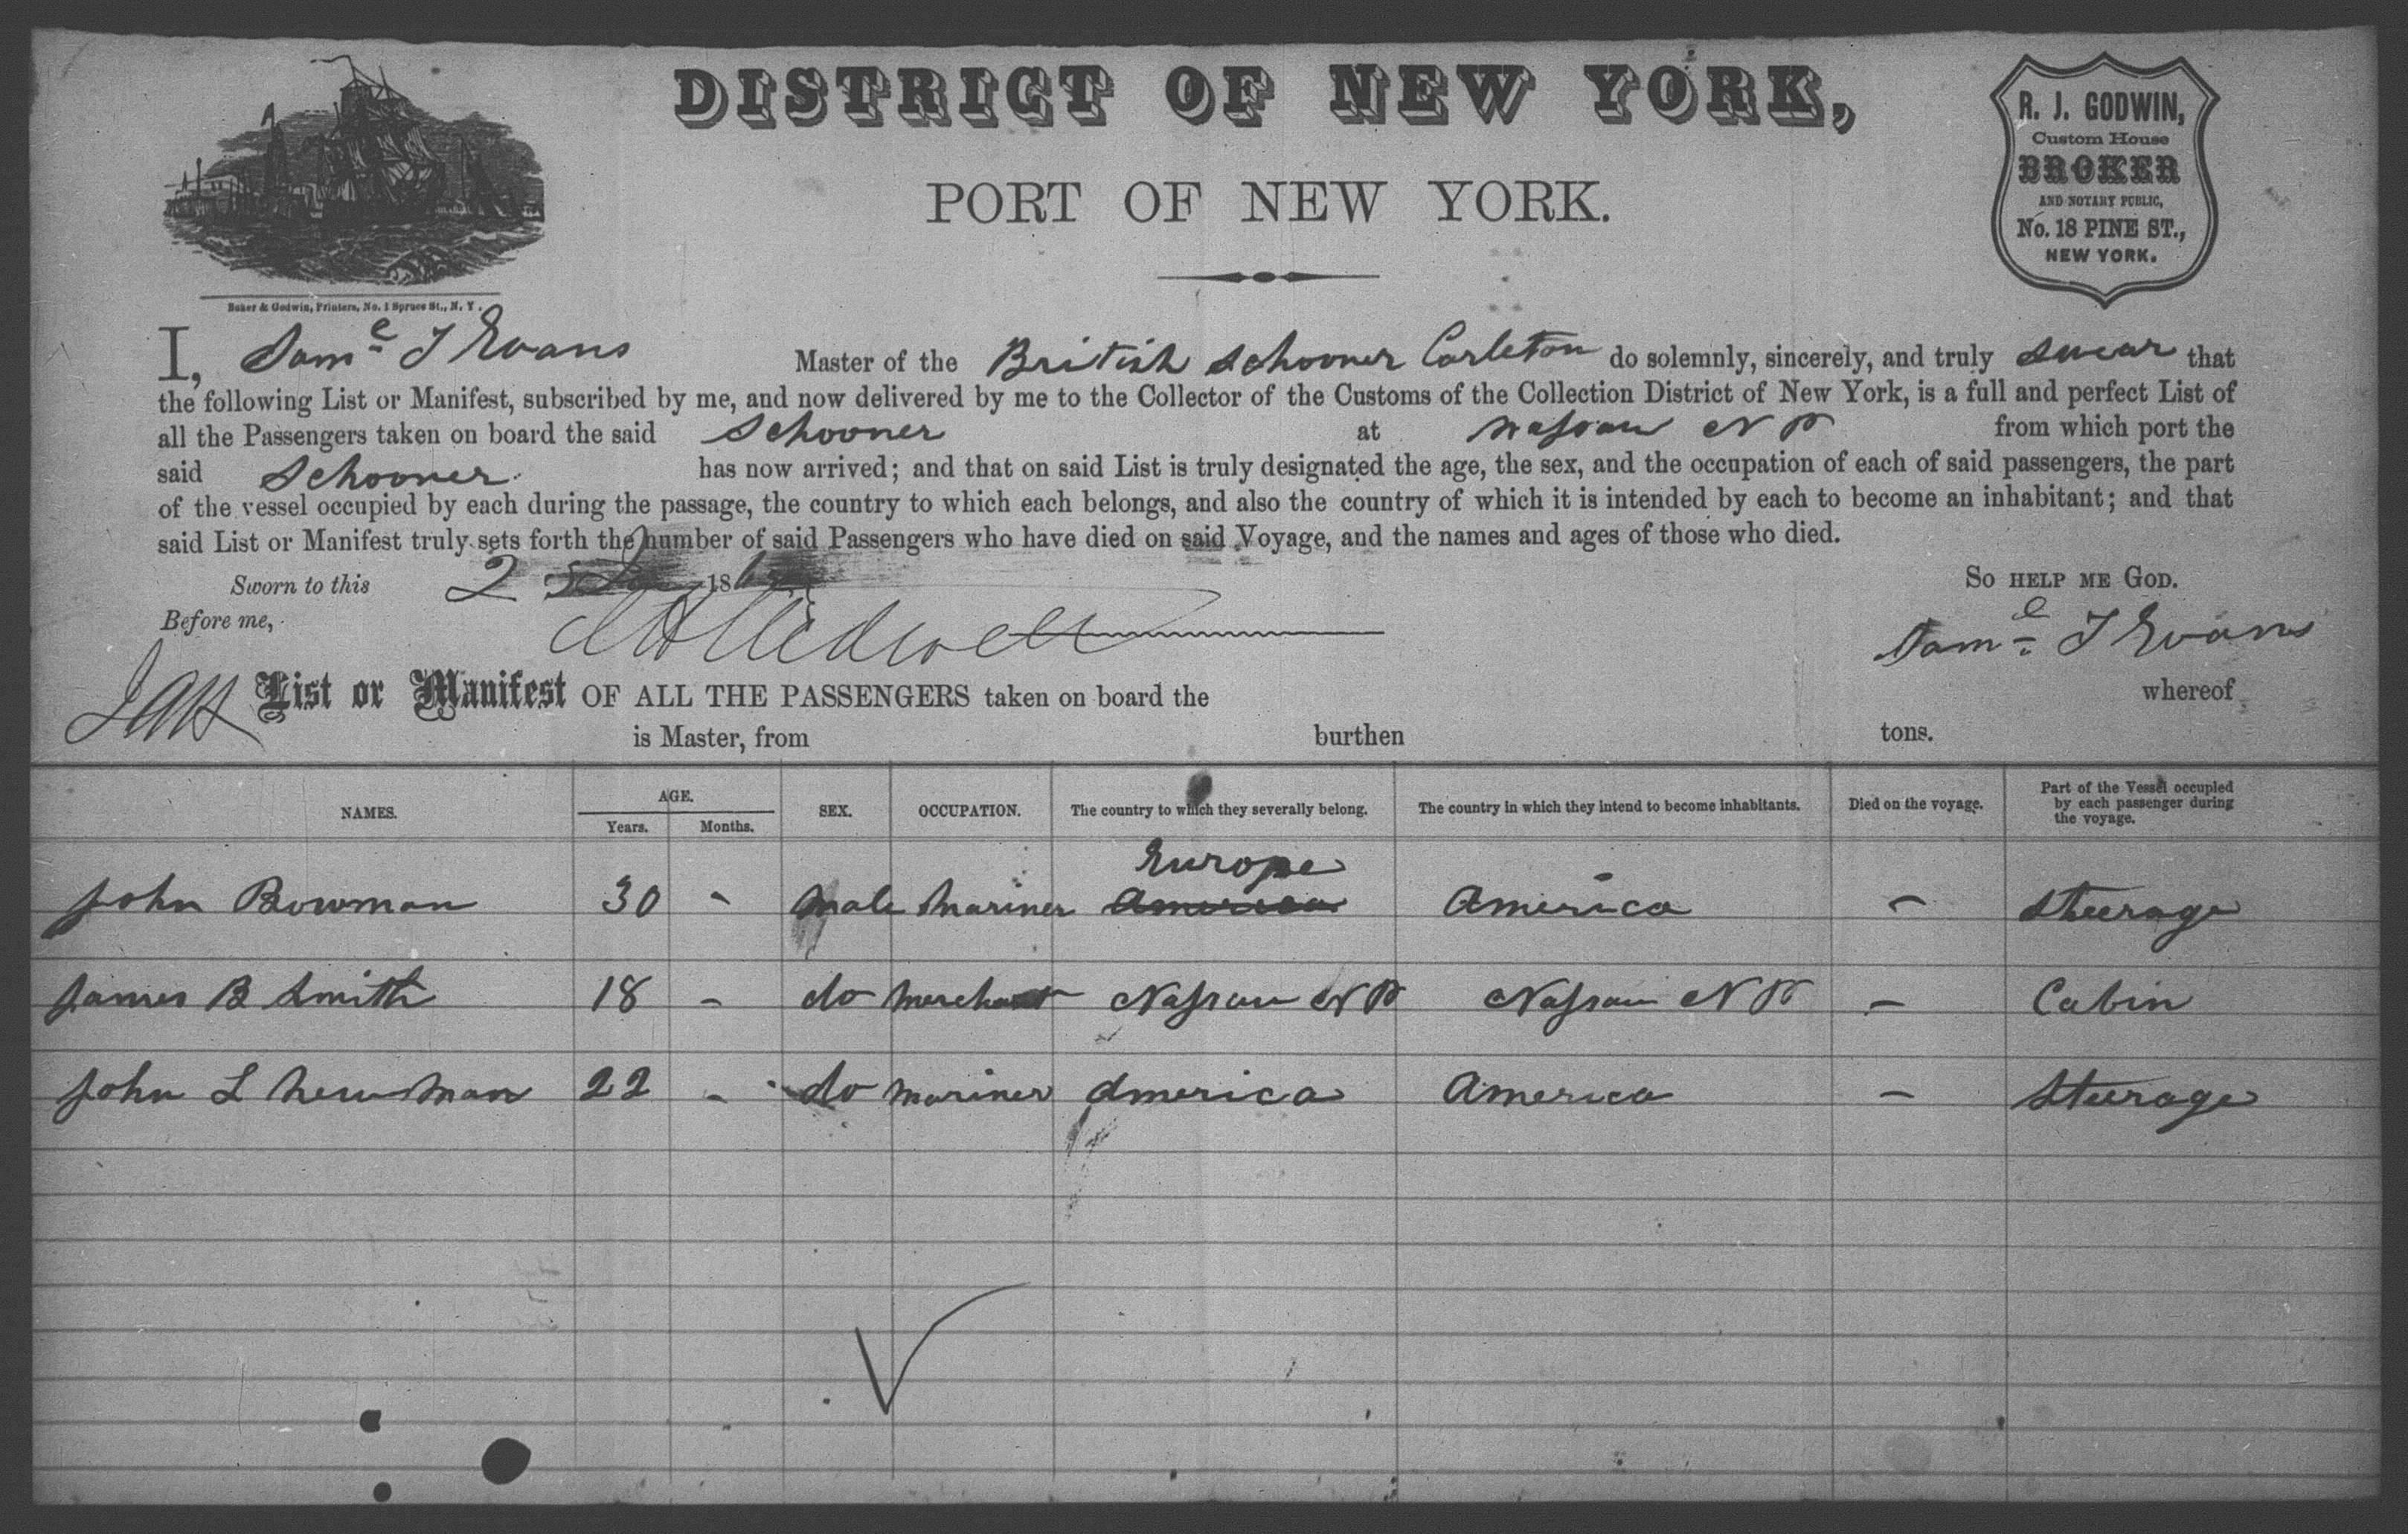 DISTRICT OF NEW YORK,
PORT OF NEW YORK.
R. J. GODWIN,
Custom House
BROKER
AND NOTARY PUBLIC,
No. 18 PINE ST.,
NEW YORK.
Baker & Godwin, Printers, No. 1 Spruce St., N. Y.
I, Sam^e T Evans Master of the British Schooner Carleton do solemnly, sincerely, and truly swear that
the following List or Manifest, subscribed by me, and now delivered by me to the Collector of the Customs of the Collection District of New York, is a full and perfect List of
all the Passengers taken on board the said Schooner at Nassau N P from which port the
said Schooner has now arrived; and that on said List is truly designated the age, the sex, and the occupation of each of said passengers, the part
of the vessel occupied by each during the passage, the country to which each belongs, and also the country of which it is intended by each to become an inhabitant; and that
said List or Manifest truly sets forth the number of said Passengers who have died on said Voyage, and the names and ages of those who died.
Sworn to this 2 186
So HELP ME GOD.
Before me,
Sam^e T Evans
List or Manifest OF ALL THE PASSENGERS taken on board the whereof
is Master, from burthen tons.
NAMES. AGE. Years. Months. SEX. OCCUPATION. The country to which they severally belong. The country in which they intend to become inhabitants. Died on the voyage. Part of the Vessel occupied by each passenger during the voyage.
Europe
John Bowman 30 - Male Mariner America America - Steerage
James B Smith 18 - do Merchant Nassau N P Nassau N P - Cabin
John L Newman 22 - do Mariner America America - Steerage